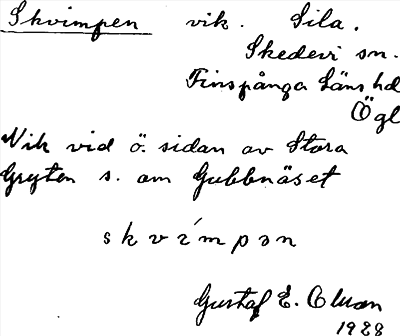 Skvimpen vik. Sila.
Skedevi sn.
Finspånga Läns hd
Ögl
Vik vid ö. sidan av Stora
Gryten s. om Gubbnäset
skvímpən
Gustaf E. Olsson
1928